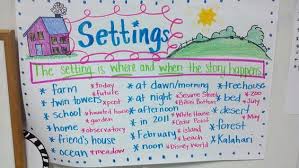 Settings
The setting is where and when the story happens.
* farm * today
* future
* twin towers * past
* school * haunted house
* garden
* home * observatory
* friend's house
* ocean * meadow
* at dawn/morning
* at night * Sesame Street
* Bikini Bottom
* afternoon
* in 2011 * White House
* Cedar Point
* February * island
* beach
* noon * Disney World
* treehouse
* bed * Dec
* May
* desert * July
* forest
* Kalahari